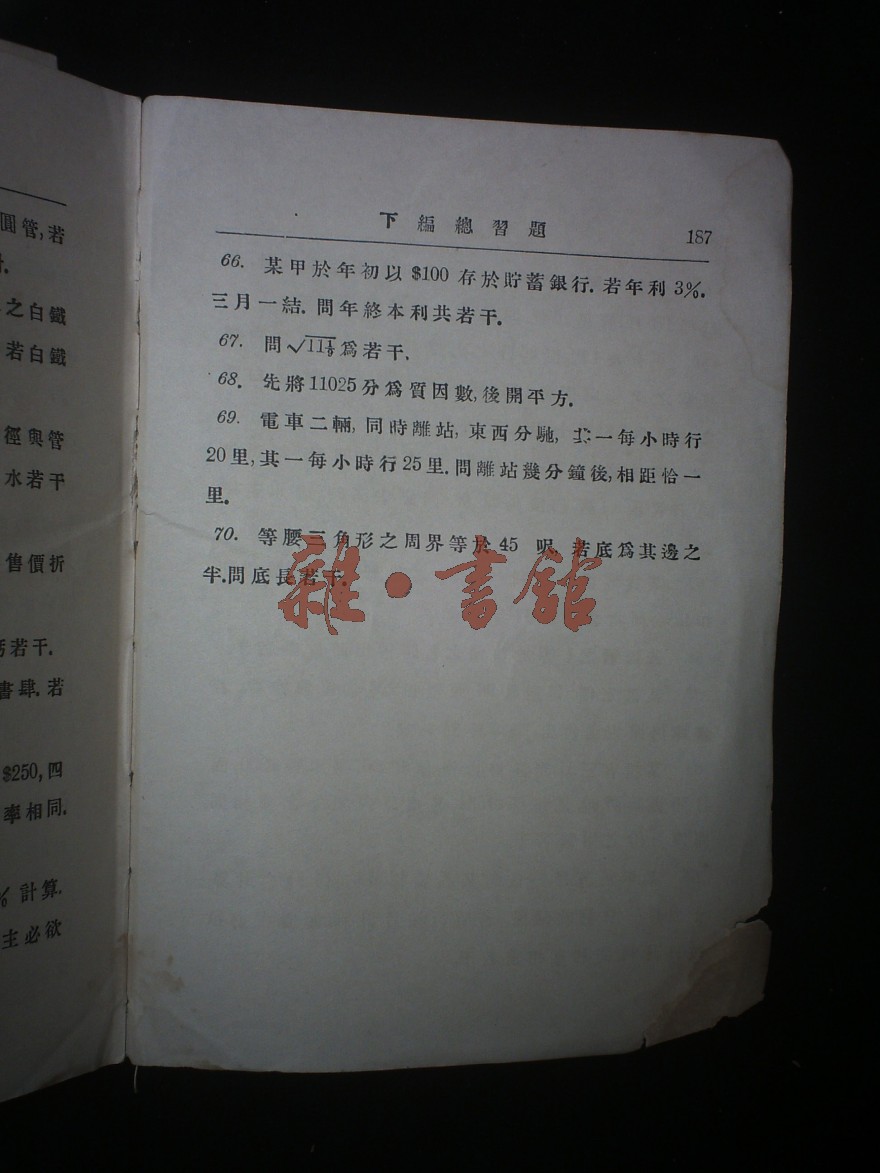 圓管,若
之白鐵
若白鐵
徑與管
水若干
售價折
若干.
書肆.若
$250,四
率相同.
% 計算.
主必欲
下編總習題 187
66. 某甲於年初以 $100 存於貯蓄銀行. 若年利 3%.
三月一結. 問年終本利共若干.
67. 問 √11 1/9 爲若干.
68. 先將11025分爲質因數,後開平方.
69. 電車二輛, 同時離站, 東西分馳, 其一每小時行
20里,其一每小時行25里.問離站幾分鐘後,相距恰一
里.
70. 等腰三角形之周界等於 45 呎. 若底爲其邊之
半.問底長若干.
雜·書館